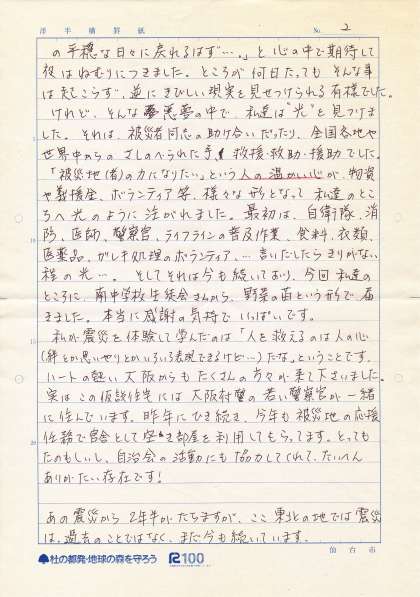 洋半横罫紙 No. 2
の平穏な日々に戻れるはず…。」と心の中で期待して
夜はねむりにつきました。ところが何日たっても そんな事
は起こらず、逆にきびしい現実を見せつけられる有様でした。
けれど、そんな悪夢の中で、私達は"光"を見つけま
した。それは、被災者同志の助け合いだったり、全国各地や
世界中からのさしのべられた手、救援・救助・援助でした。
「被災地(者)の力になりたい」という人の温かい心が、物資
や義援金、ボランティア等、様々な形となって私達のとこ
ろへ光のように注がれました。最初は、自衛隊、消
防、医師、警察官、ライフラインの普及作業、食料、衣類、
医薬品、ガレキ処理のボランティア、…言いだしたらきりがない
程の光…。そしてそれは今も続いており、今回 私達の
ところに、南中学校生徒会さんから、野菜の苗という形で届
きました。本当に感謝の気持でいっぱいです。
私が震災を体験して学んだのは「人を救えるのは人の心
(絆とか思いやりとかいろいろ表現できるけど…)だな。ということです。
ハートの熱い大阪からもたくさんの方々が来て下さいました。
実はこの仮設住宅には大阪府警の若い警察官が一緒
に住んでいます。昨年にひき続き、今年も被災地の応援
任務で官舎として空き部屋を利用してもらってます。とっても
たのもしいし、自治会の活動にも協力してくれて、たいへん
ありがたい存在です!
あの震災から2年半がたちますが、ここ東北の地では震災
は、過去のことではなく、まだ今も続いています。
5
10
15
20
杜の都発・地球の森を守ろう R100 仙台市